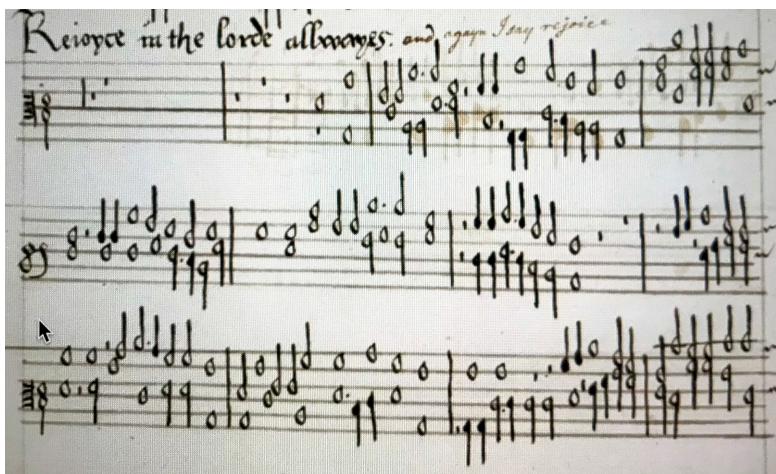 Reioyce in the lorde allwayes. and agayn I say rejoice